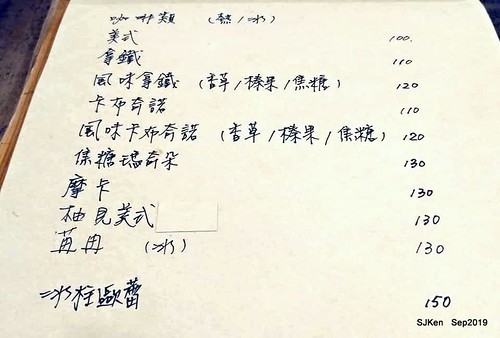 咖啡類 (熱/冰)
美式 100.
拿鐵 110
風味拿鐵 (香草/榛果/焦糖) 120
卡布奇諾 110
風味卡布奇諾 (香草/榛果/焦糖) 120
焦糖瑪奇朵 130
摩卡 130
柚見美式 130
苺冉 (冰) 130
冰拄歐蕾 150
SJKen Sep2019